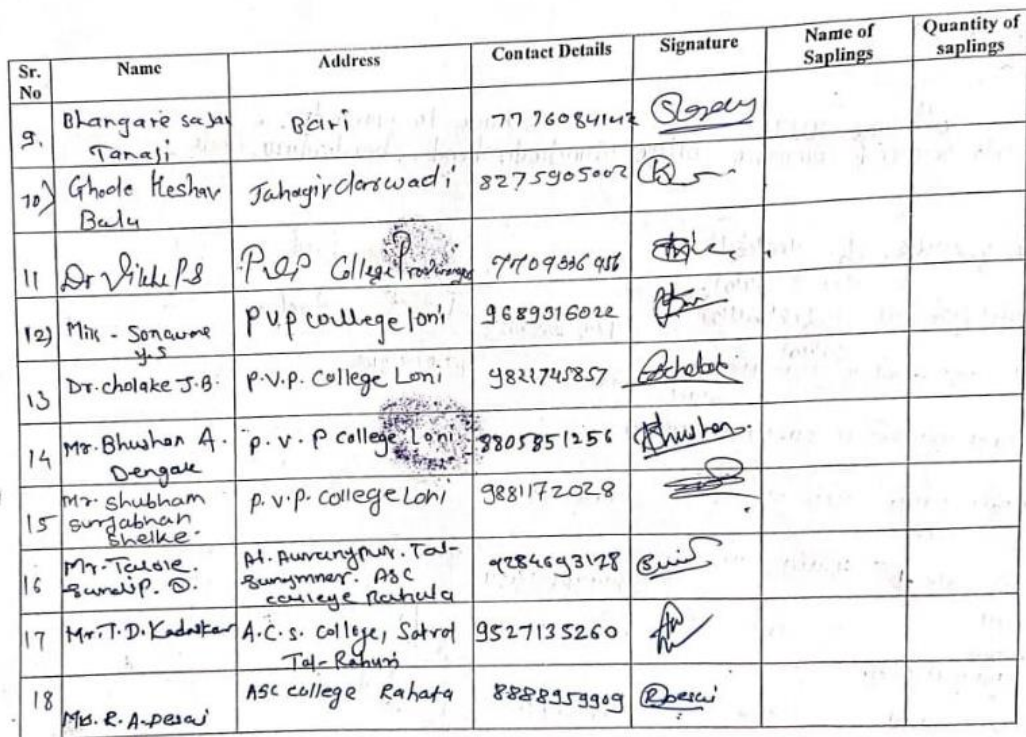 Sr. No Name Address Contact Details Signature Name of Saplings Quantity of saplings
9. Bhangare sajan Tanaji Bari 7776084142
10) Ghode Keshav Balu Jahagirdarwadi 8275905002
11 Dr Vikhe P S P.V.P College Pravaranagar 7709336956
12) Miss - Sonawane y.s P V P college loni 9689316022
13 Dr. cholake J.B. P.V.P. College Loni 9821745857
14 Mr. Bhushan A. Dengale P. V. P college Loni 8805851256 Bhushan
15 Mr. shubham suryabhan shelke. P.V.P. College Loni 9881172028
16 Mr. Tasole. Sandip. D. At. Tal- ASC college Rahata 9284693128
17 Mr. T.D. Kadaskar A.C.S. College, Satral Tal- Rahuri 9527135260
18 Mrs. R. A. Desai ASC college Rahata 8888959909 RDesai